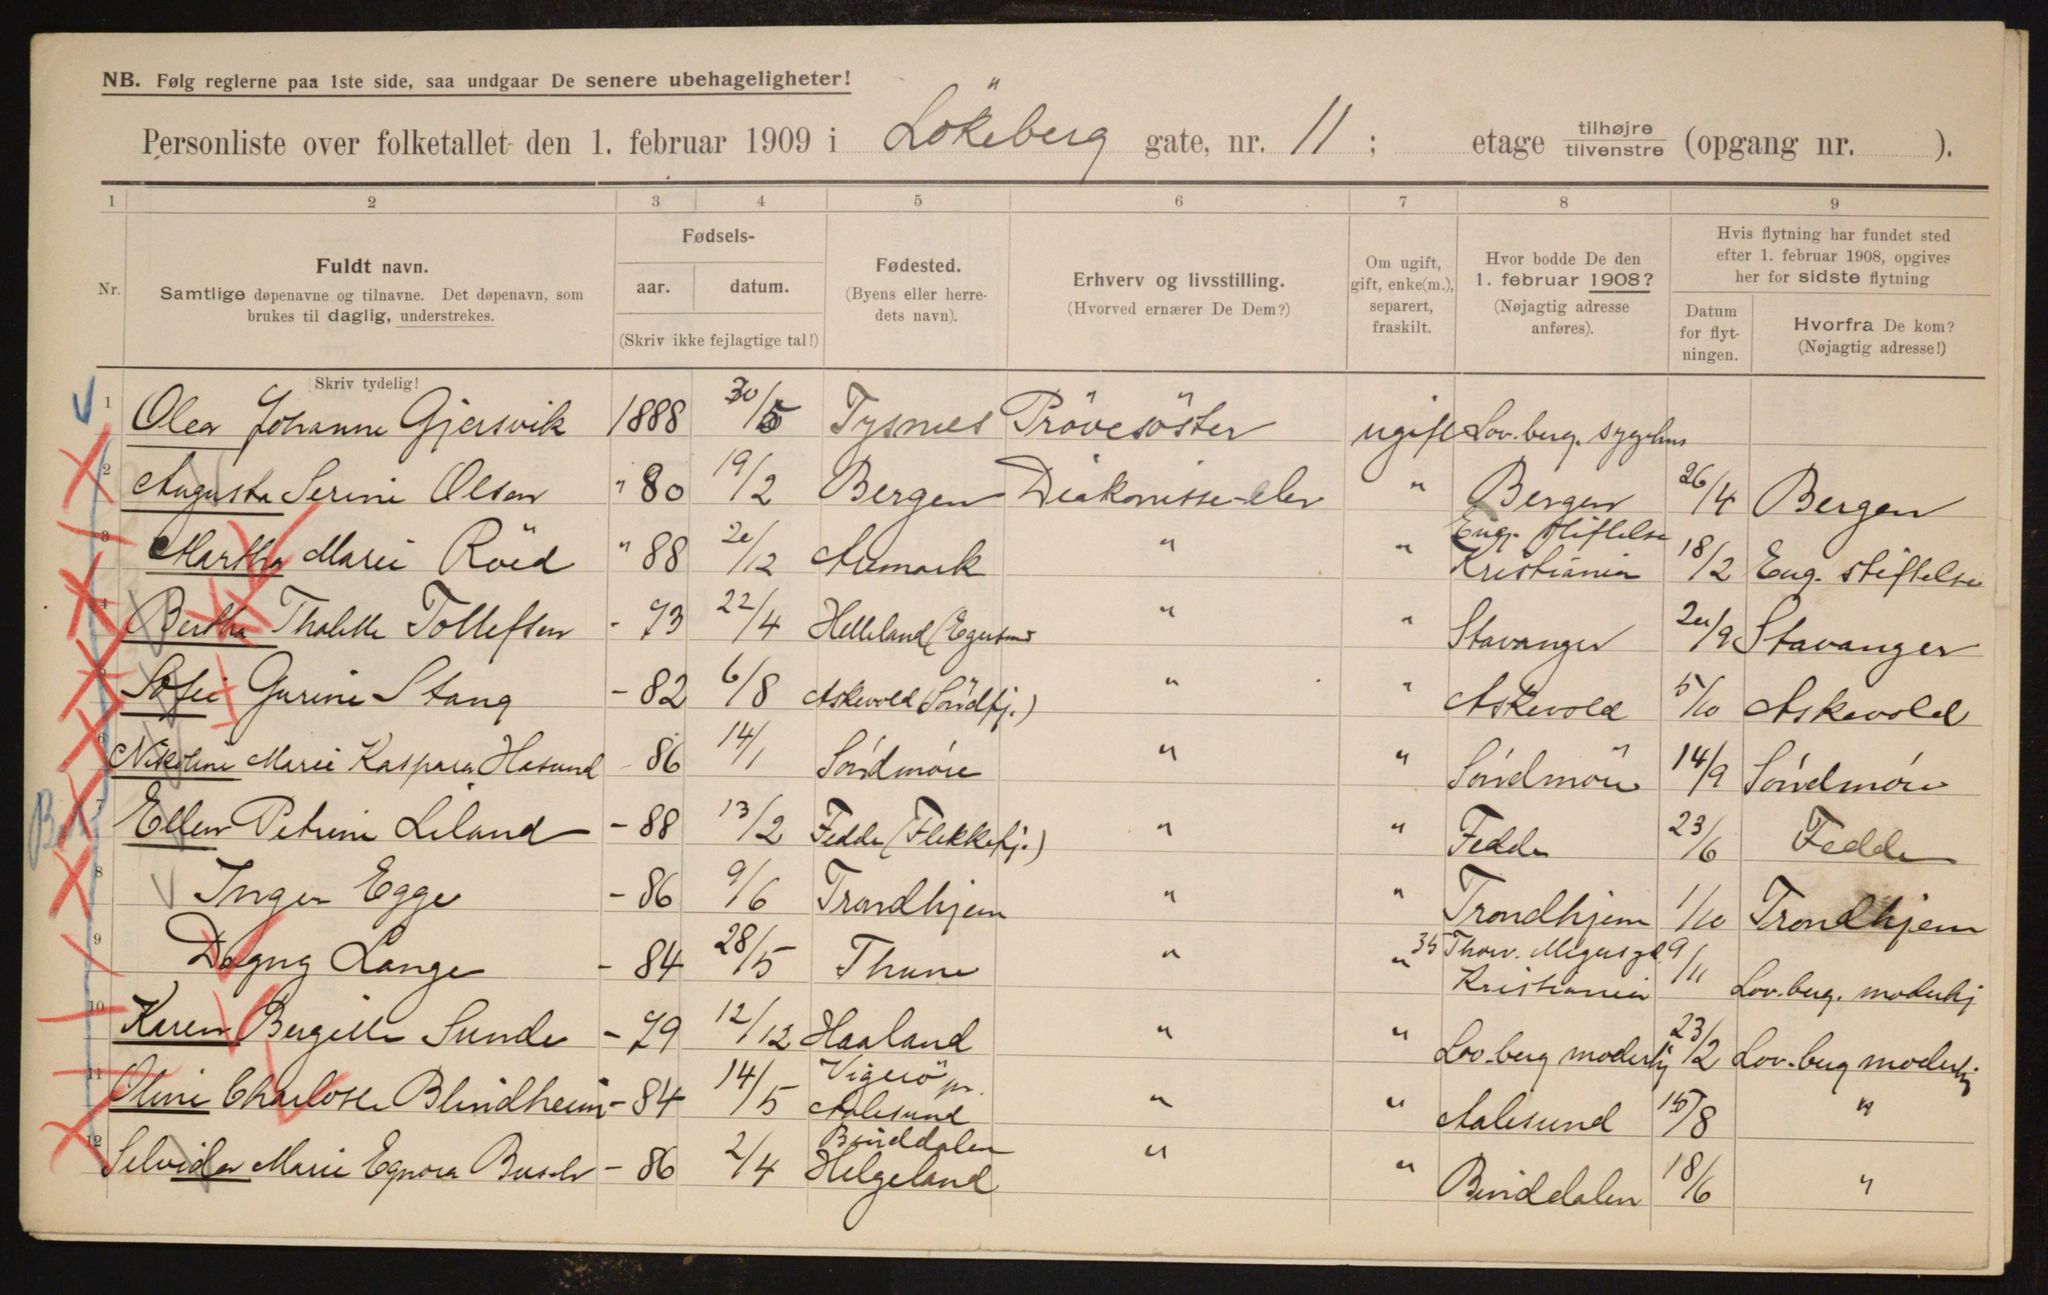 NB. Følg reglerne paa 1ste side, saa undgaar De senere ubehageligheter!
Personliste over folketallet den 1. februar 1909 i Lökeberg gate, nr. 11 ; etage tilhøjre tilvenstre (opgang nr. ).
1 2 3 4 5 6 7 8 9
Nr.
Fuldt navn.
Samtlige døpenavne og tilnavne. Det døpenavn, som
brukes til daglig, understrekes.
Skriv tydelig!
Fødsels-
aar. datum.
(Skriv ikke fejlagtige tal!)
Fødested.
(Byens eller herre-
dets navn).
Erhverv og livsstilling.
(Hvorved ernærer De Dem?)
Om ugift,
gift, enke(m.),
separert,
fraskilt.
Hvor bodde De den
1. februar 1908?
(Nøjagtig adresse
anføres).
Hvis flytning har fundet sted
efter 1. februar 1908, opgives
her for sidste flytning
Datum
for flyt-
ningen.
Hvorfra De kom?
(Nøjagtig adresse!)
1 Olea Johanne Gjersvik 1888 30/5 Tysnes Prövesöster ugift Lov.berg. sygehus
2 Augusta Serine Olsen " 80 19/2 Bergen Diakonisse-elev " Bergen 26/4 Bergen
3 Martha Marie Röed " 88 /12 Aremark " " Eug. Stiftelse Kristiania 18/2 Eug. stiftelse
4 Bertha Thalette Tollefsen - 73 22/4 Helleland (Egersund " " Stavanger /9 Stavanger
5 Sofie Gurine Stang - 82 6/8 Askevold (Söndfj.) " " Askevold 5/10 Askevold
6 Nikoline Marie Kaspara Hasund - 86 14/1 Söndmöre " " Söndmör 14/9 Söndmöre
7 Ellen Petrine Liland - 88 13/2 Fedde (Flekkefj.) " " Fedde 23/6 Fedde
8 Inger Egge - 86 9/6 Trondhjem " " Trondhjem 1/10 Trondhjem
9 Dagny Lange - 84 28/5 Thune " " 35 Thorv. Meyersgd. Kristiania 9/11 Lov.berg. moderhj
10 Karen Bergitte Sunde - 79 12/12 Haaland " " Lov.berg moderhj 23/2 Lov.berg moderhj
11 Oline Charlotte Blindheim - 84 14/5 Vigerö pr. Aalesund " " Aalesund 15/8 "
12 Selvida Marie Egnora Busch - 86 2/4 Binddalen Helgeland " " Binddalen 18/6 "